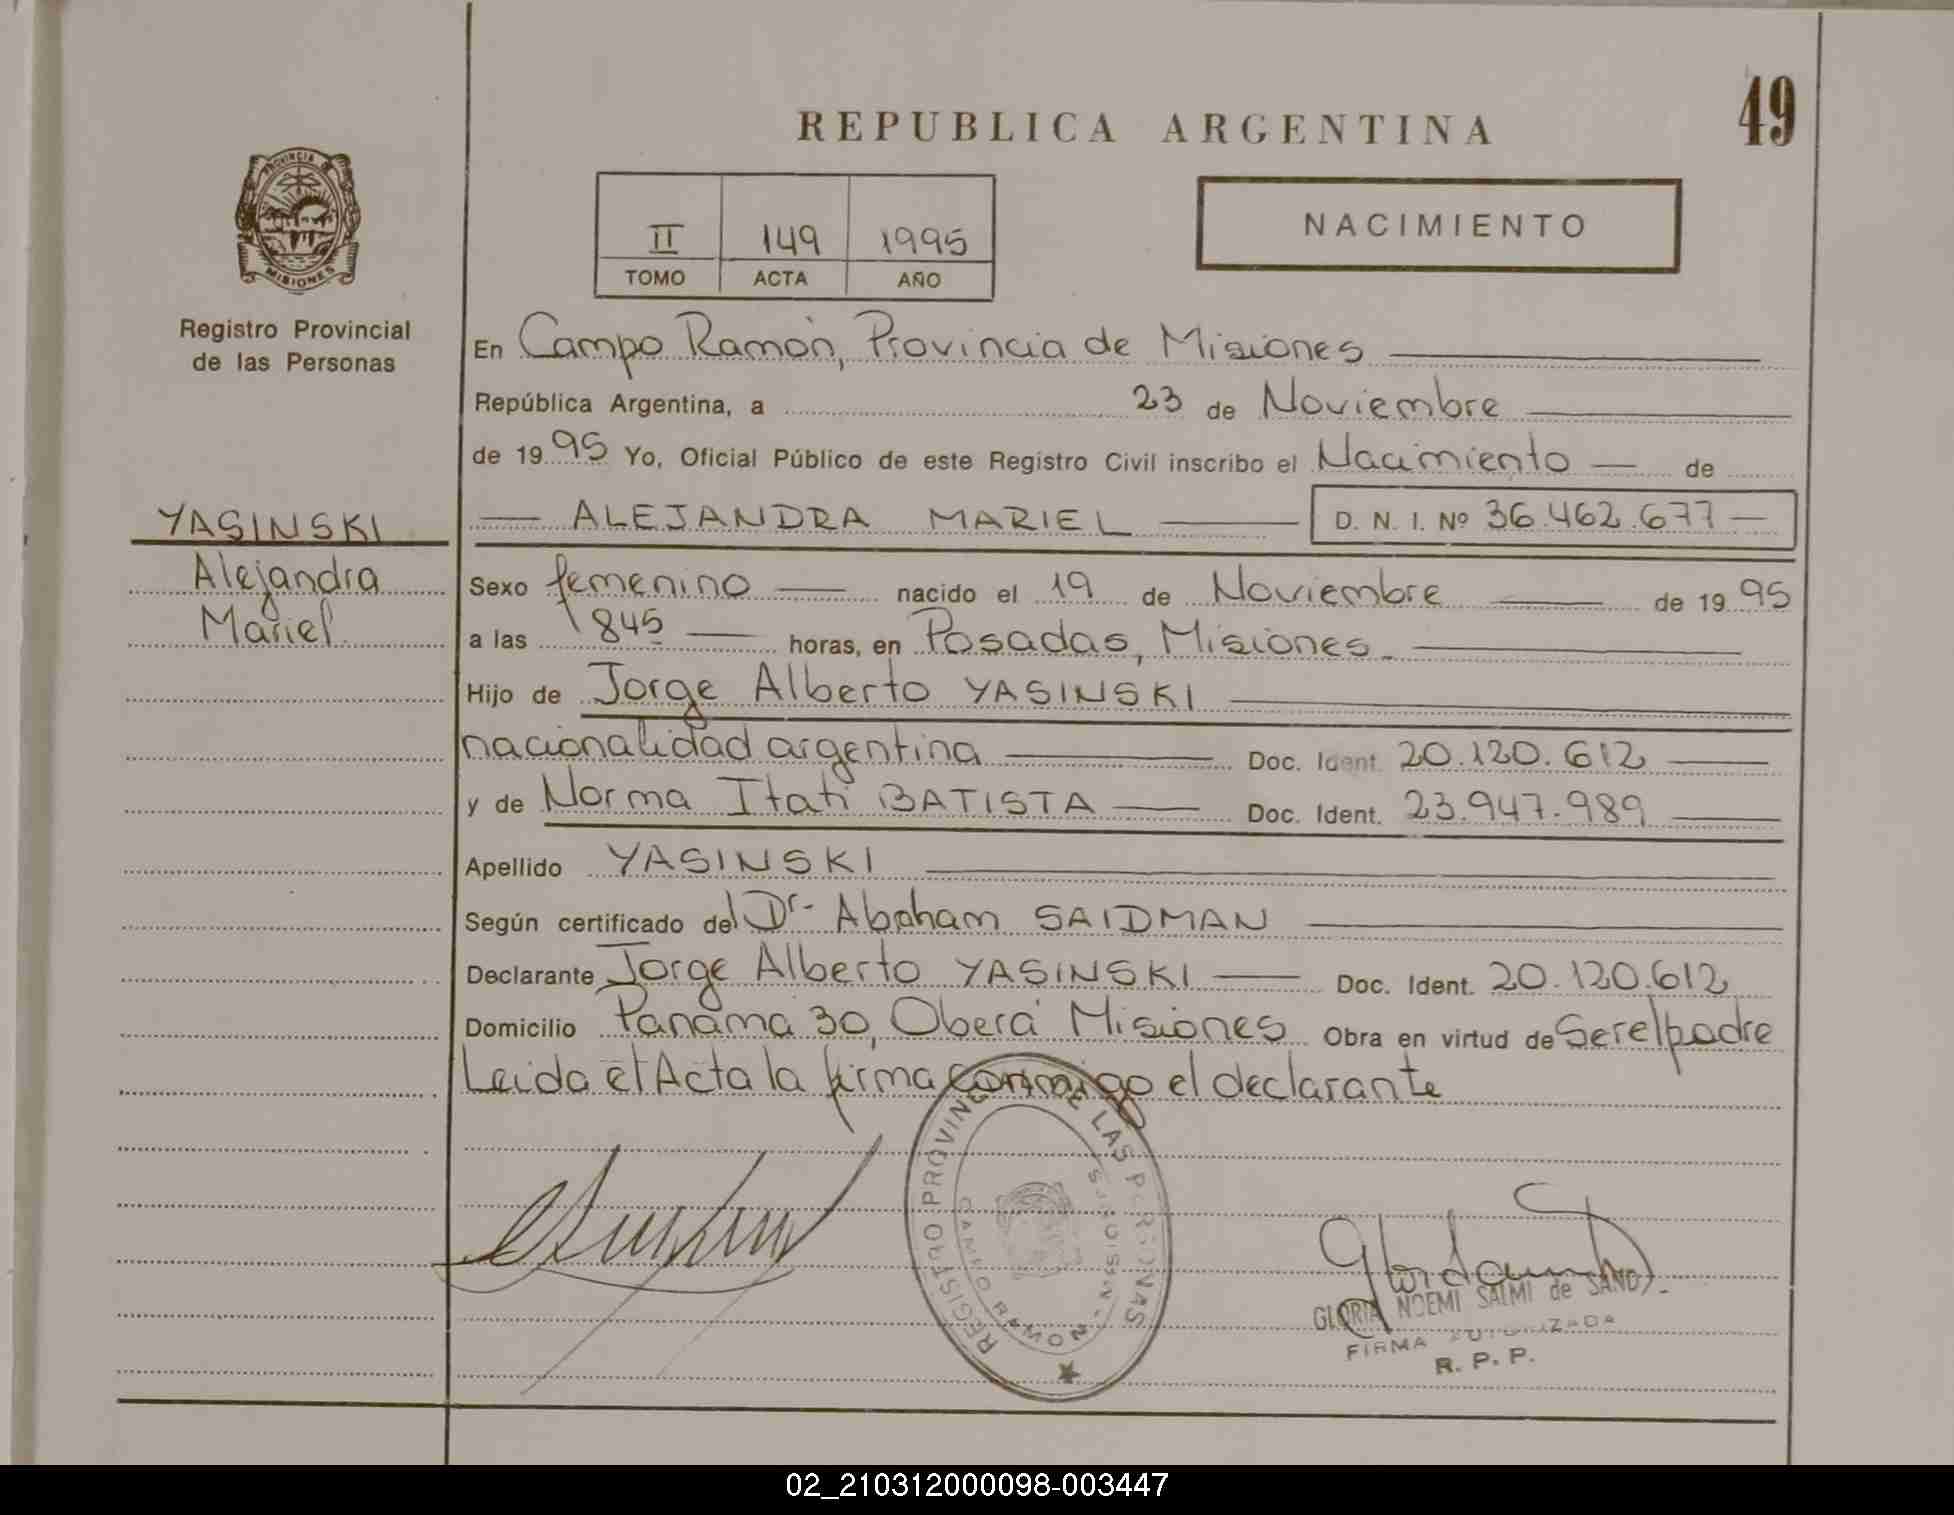 49
REPUBLICA ARGENTINA
PROVINCIA DE
MISIONES
Registro Provincial
de las Personas
II 149 1995
TOMO ACTA AÑO
NACIMIENTO
En Campo Ramón, Provincia de Misiones
República Argentina, a 23 de Noviembre
de 1995 Yo, Oficial Público de este Registro Civil inscribo el Nacimiento — de
— ALEJANDRA MARIEL — D. N. I. Nº 36.462.677 —
YASINSKI
Alejandra
Mariel
Sexo femenino — nacido el 19 de Noviembre — de 1995
a las 1845 — horas, en Posadas, Misiones. —
Hijo de Jorge Alberto YASINSKI —
nacionalidad argentina — Doc. Ident. 20.120.612 —
y de Norma Itati BATISTA — Doc. Ident. 23.947.989 —
Apellido YASINSKI —
Según certificado del Dr. Abaham SAIDMAN —
Declarante Jorge Alberto YASINSKI — Doc. Ident. 20.120.612
Domicilio Panamá 30, Oberá Misiones Obra en virtud de Ser el padre
Leida el Acta la firma conmigo el declarante
REGISTRO PROVINCIAL DE LAS PERSONAS
CAMPO RAMON - MISIONES
GLORIA NOEMI SALMI de SAND
FIRMA AUTORIZADA
R. P. P.
02_210312000098-003447